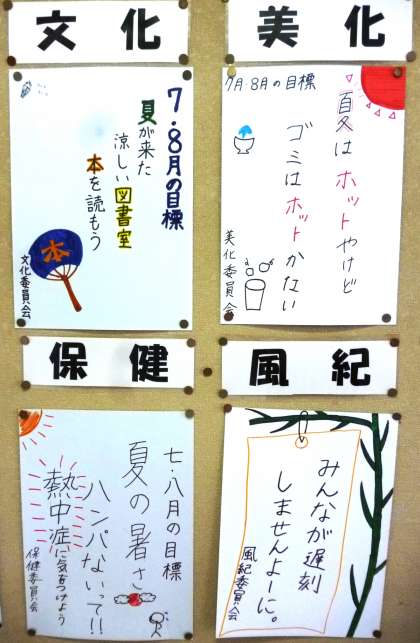 文化
7・8月の目標
夏が来た
涼しい図書室
本を読もう
本
文化委員会
美化
7月・8月の目標
夏はホットやけど
ゴミはホットかない
美化委員会
保健
七・八月の目標
夏の暑さ
ハンパないって!!
熱中症に気をつけよう
保健委員会
風紀
みんなが遅刻
しませんよーに。
風紀委員会